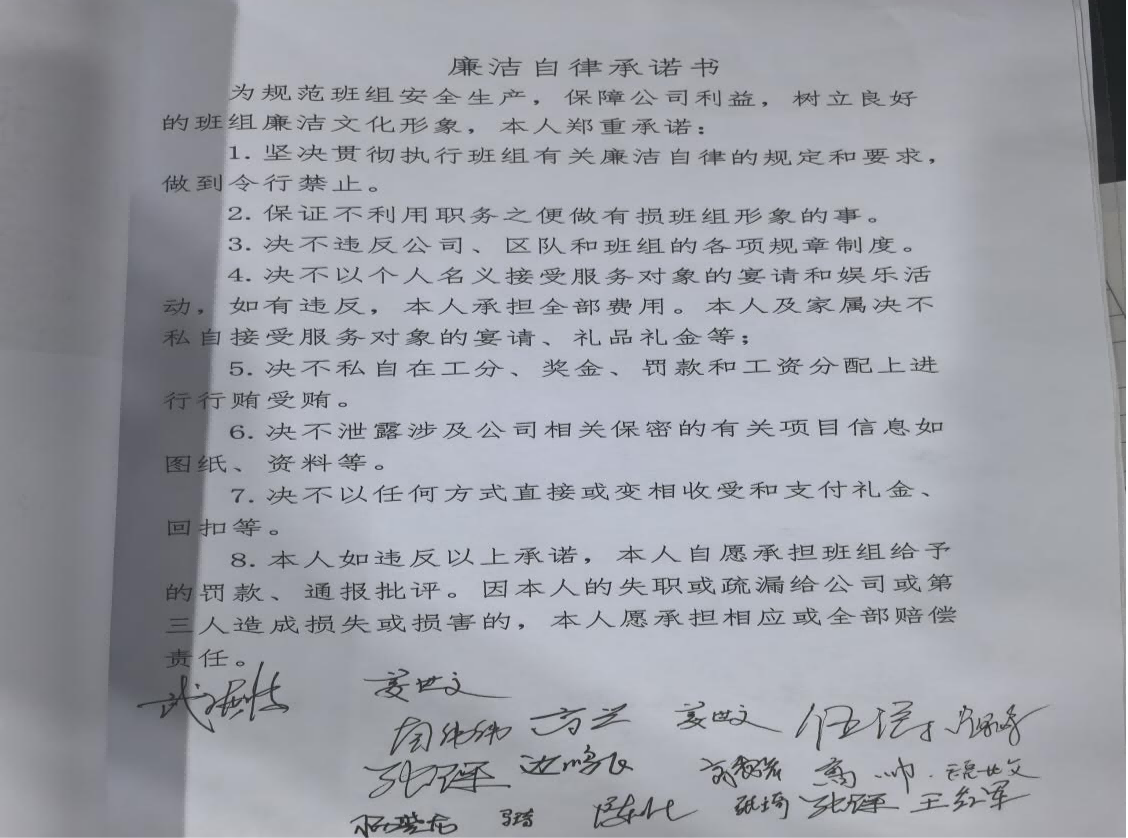 廉洁自律承诺书
为规范班组安全生产，保障公司利益，树立良好
的班组廉洁文化形象，本人郑重承诺：
1.坚决贯彻执行班组有关廉洁自律的规定和要求，
做到令行禁止。
2.保证不利用职务之便做有损班组形象的事。
3.决不违反公司、区队和班组的各项规章制度。
4.决不以个人名义接受服务对象的宴请和娱乐活
动，如有违反，本人承担全部费用。本人及家属决不
私自接受服务对象的宴请、礼品礼金等；
5.决不私自在工分、奖金、罚款和工资分配上进
行行贿受贿。
6.决不泄露涉及公司相关保密的有关项目信息如
图纸、资料等。
7.决不以任何方式直接或变相收受和支付礼金、
回扣等。
8.本人如违反以上承诺，本人自愿承担班组给予
的罚款、通报批评。因本人的失职或疏漏给公司或第
三人造成损失或损害的，本人愿承担相应或全部赔偿
责任。
姜世文
周伟伟 方兰 姜世文
边鹏飞 高帅
马琦 张琦 王红军